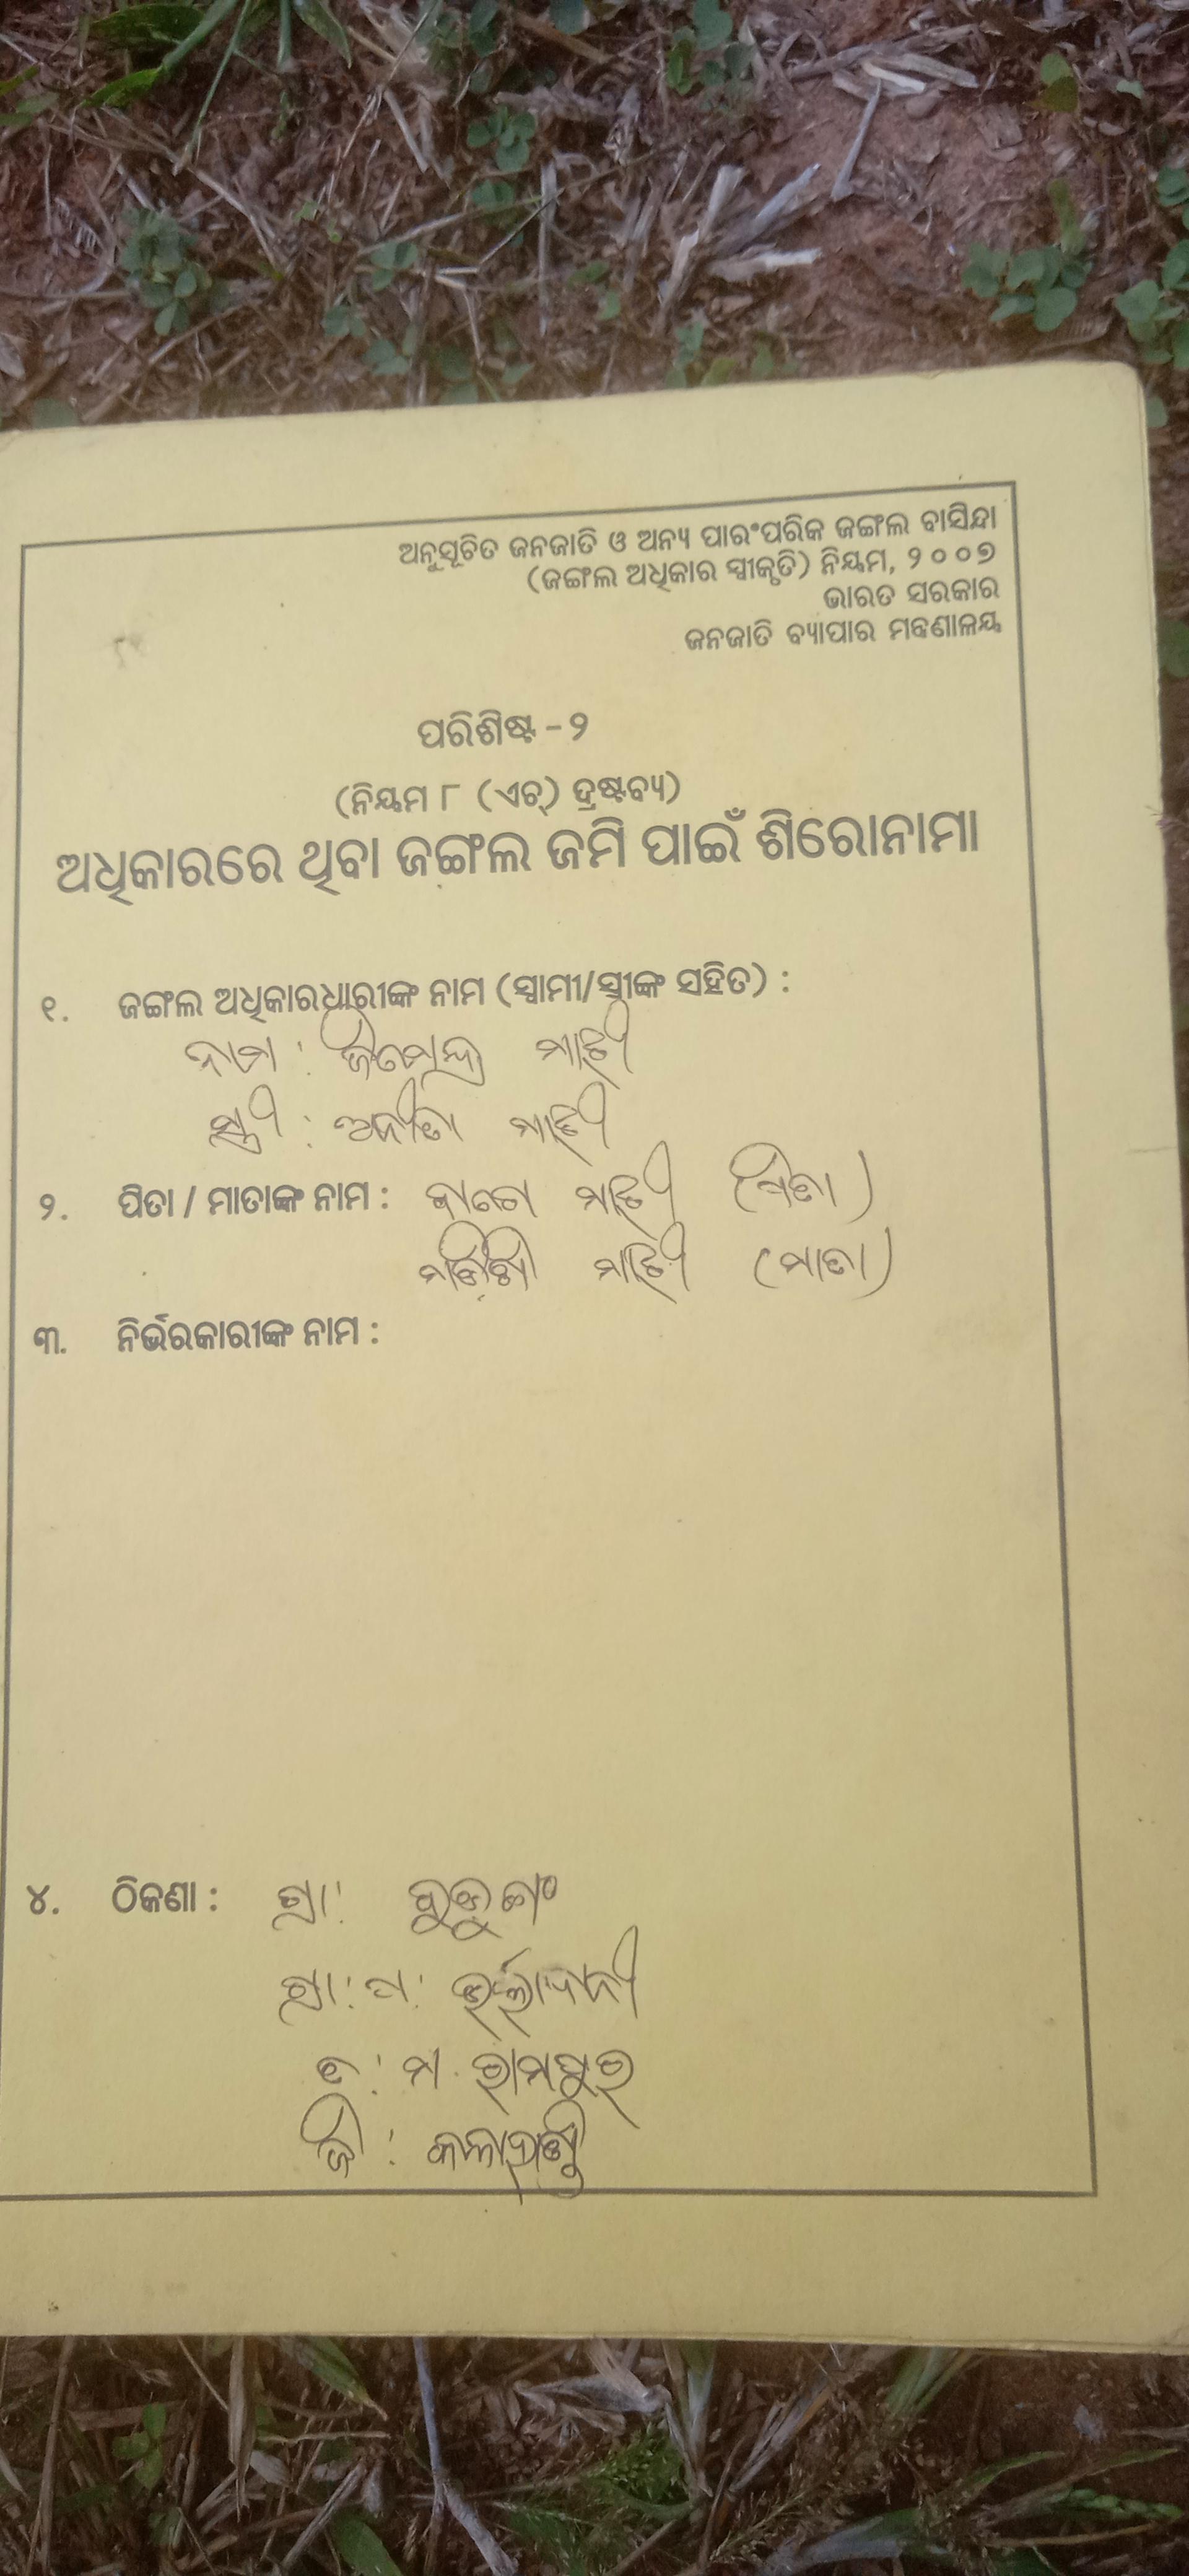 ଅନୁସୂଚିତ ଜନଜାତି ଓ ଅନ୍ୟ ପାରଂପରିକ ଜଙ୍ଗଲ ବାସିନ୍ଦା
(ଜଙ୍ଗଲ ଅଧିକାର ସ୍ୱୀକୃତି) ନିୟମ, ୨୦୦୭
ଭାରତ ସରକାର
ଜନଜାତି ବ୍ୟାପାର ମନ୍ତ୍ରଣାଳୟ
ପରିଶିଷ୍ଟ -୨
(ନିୟମ ୮ (ଏଚ୍) ଦ୍ରଷ୍ଟବ୍ୟ)
ଅଧିକାରରେ ଥିବା ଜଙ୍ଗଲ ଜମି ପାଇଁ ଶିରୋନାମା
୧. ଜଙ୍ଗଲ ଅଧିକାରଧାରୀଙ୍କ ନାମ (ସ୍ୱାମୀ/ସ୍ତ୍ରୀଙ୍କ ସହିତ) :
ନାମ : ମାଝୀ
ସ୍ତ୍ରୀ : ଅନୀତା ମାଝୀ
୨. ପିତା / ମାତାଙ୍କ ନାମ : ମାଝୀ (ପିତା)
ମାଝୀ (ମାତା)
୩. ନିର୍ଭରକାରୀଙ୍କ ନାମ :
୪. ଠିକଣା : ଗ୍ରା:
ଗ୍ରା: ପ:
ବ: ମ. ରାମପୁର
ଜି : କଳାହାଣ୍ଡି